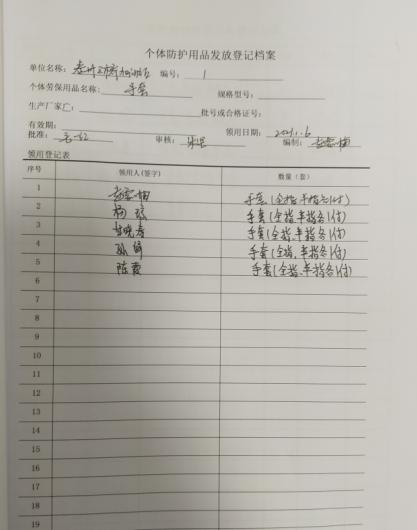 个体防护用品发放登记档案
单位名称： 加油站 编号： 1
个体劳保用品名称： 手套 规格型号：
生产厂家： 批号或合格证号：
有效期： 领用日期： 2021.1.6
批准： 审核： 编制：
领用登记表
序号 领用人(签字) 数量（套）
1 手套(全指,半指各1付)
2 杨 手套(全指,半指各1付)
3 手套(全指,半指各1付)
4 孙 手套(全指,半指各1付)
5 陈霞 手套(全指,半指各1付)
6
7
8
9
10
11
12
13
14
15
16
17
18
19